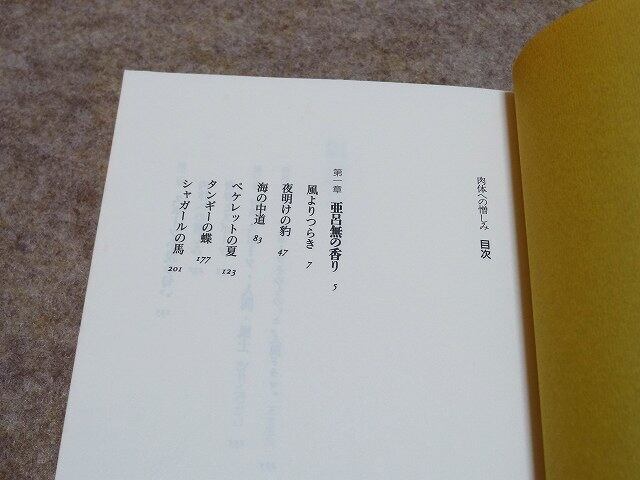 肉体への憎しみ 目次
第一章 亜呂無の香り 5
風よりつらき 7
夜明けの豹 47
海の中道 83
ペケレットの夏 123
タンギーの蝶 177
シャガールの馬 201